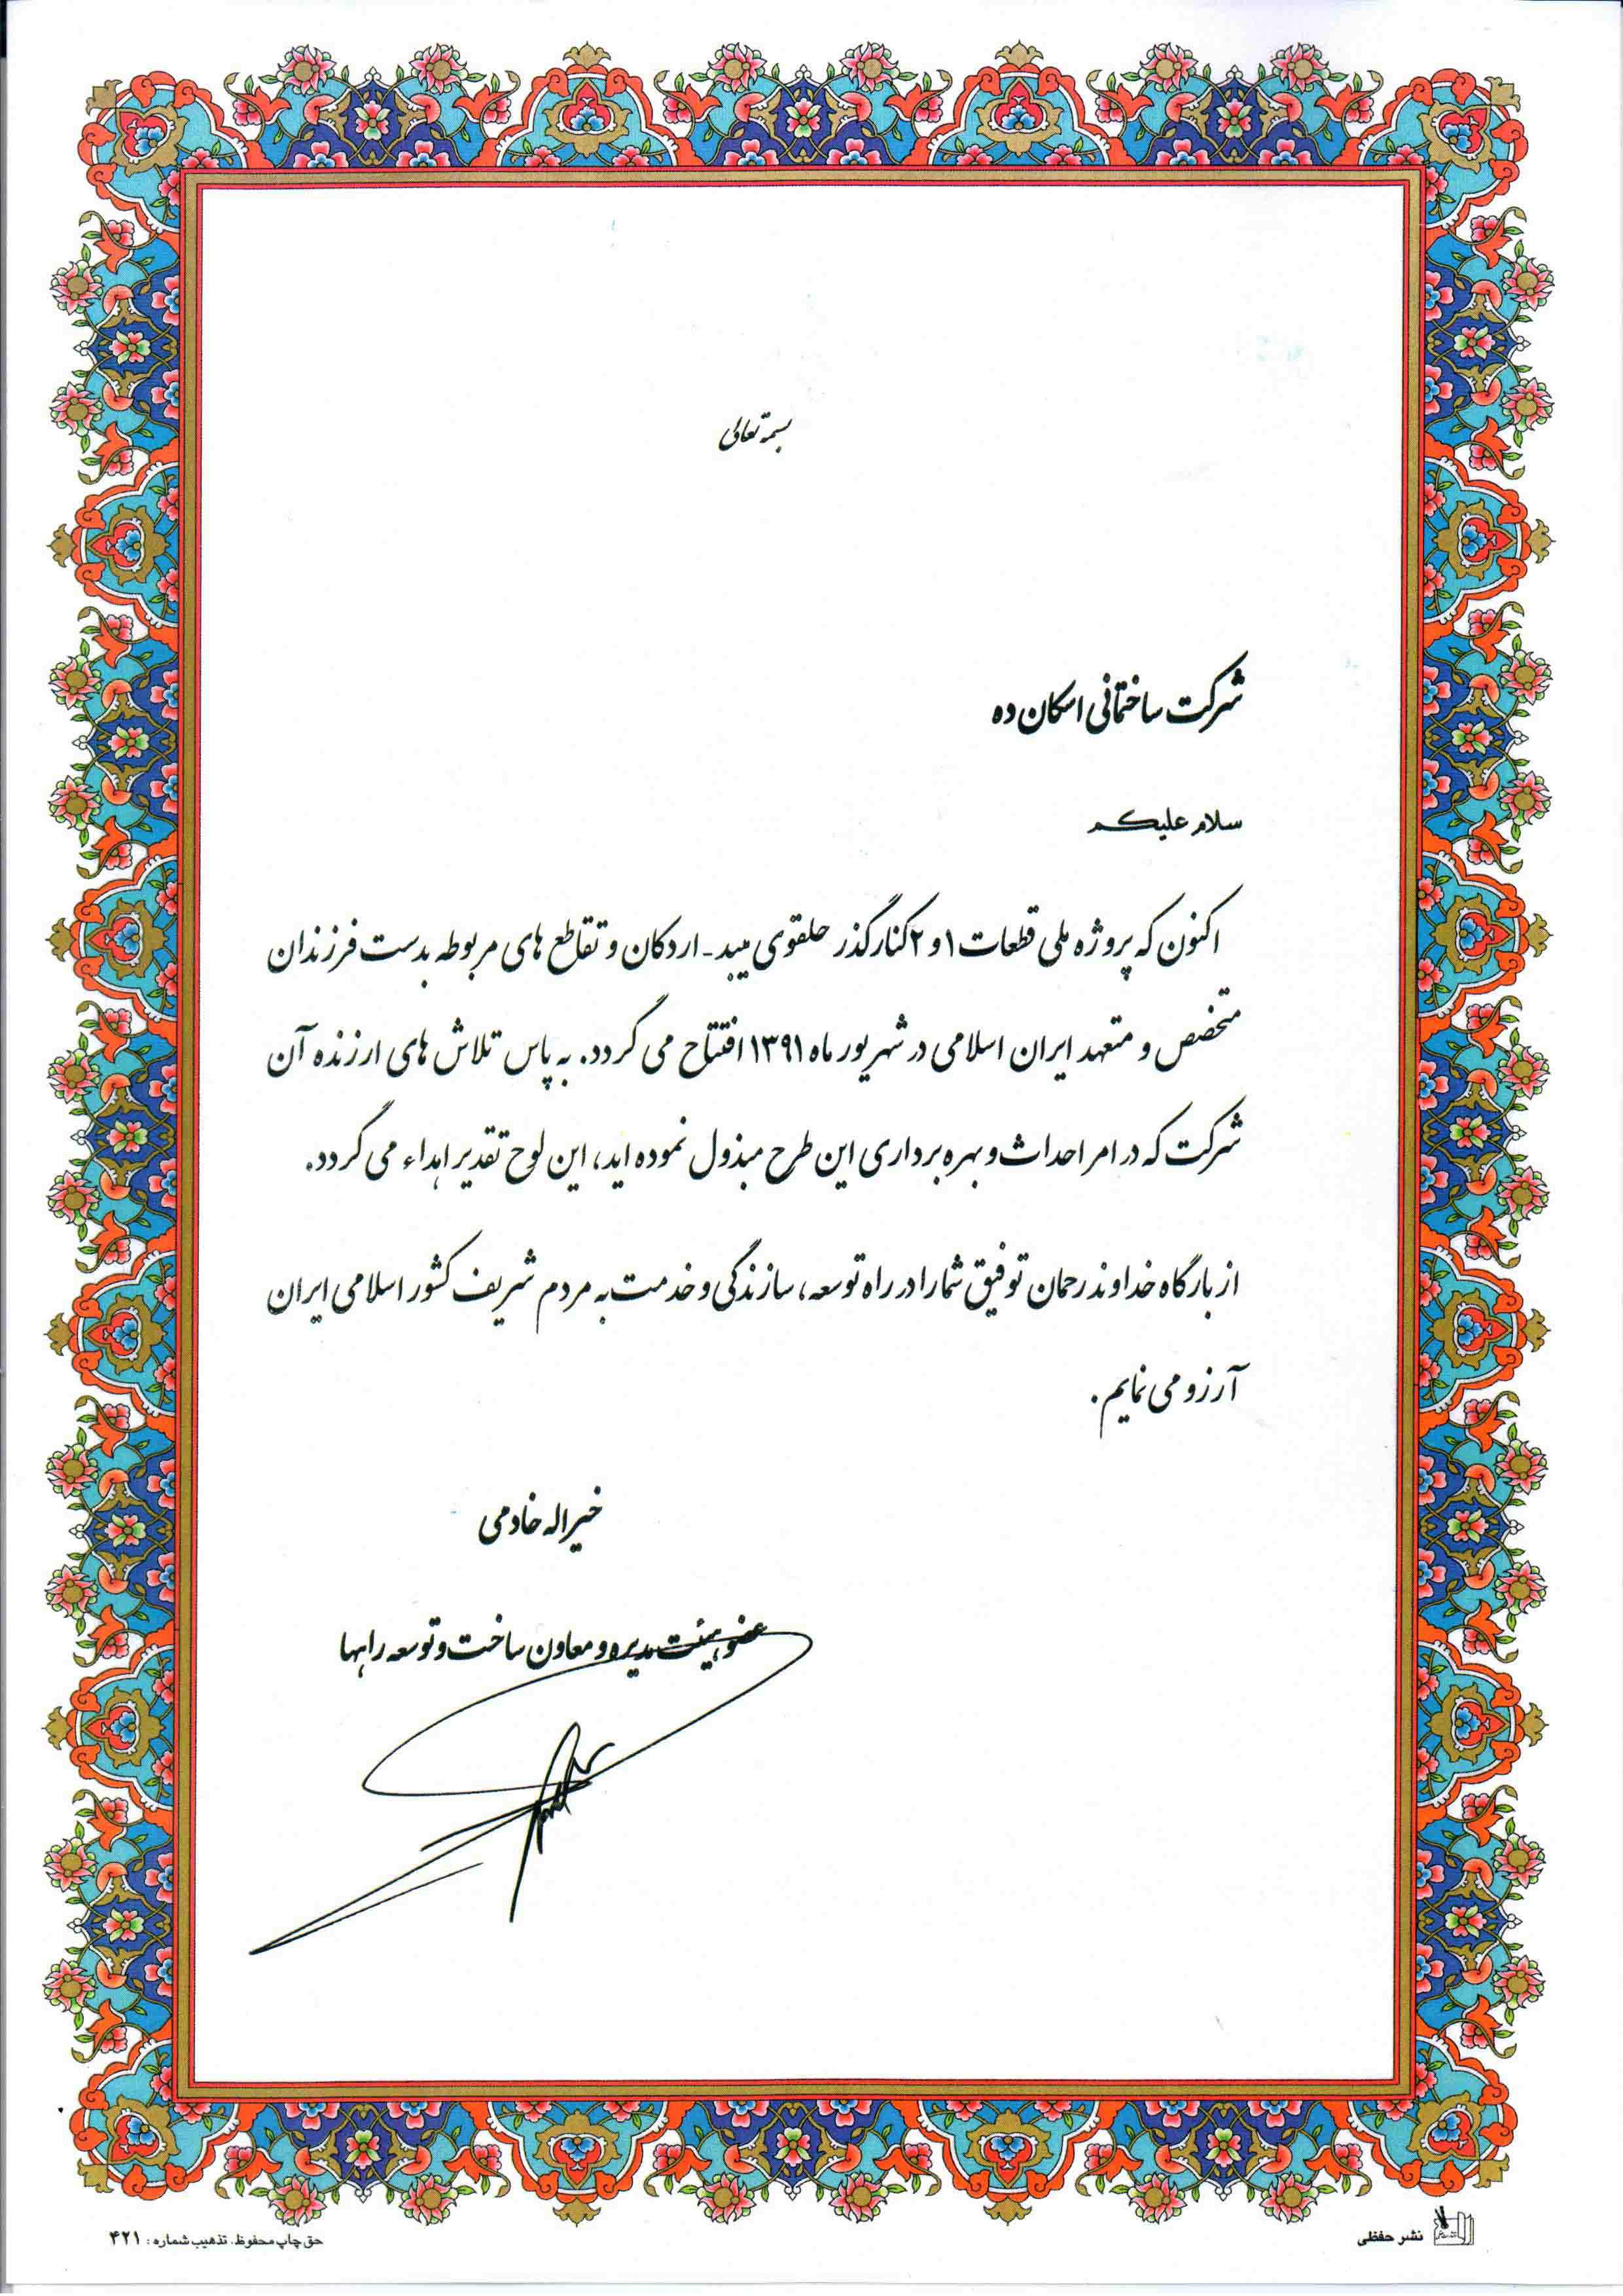 بسمه تعالی
شرکت ساختمانی اسکان ده
سلام علیکم
اکنون که پروژه ملی قطعات ۱ و ۲ کنارگذر حلقوی میبد - اردکان و تقاطع های مربوطه بدست فرزندان
متخصص و متعهد ایران اسلامی در شهریور ماه ۱۳۹۱ افتتاح می گردد. به پاس تلاش های ارزنده آن
شرکت که در امر احداث و بهره برداری این طرح مبذول نموده اید، این لوح تقدیر اهداء می گردد.
از بارگاه خداوند رحمان توفیق شما را در راه توسعه، سازندگی و خدمت به مردم شریف کشور اسلامی ایران
آرزو می نمایم.
خیراله خادمی
عضو هیئت مدیره و معاون ساخت و توسعه راهها
نشر حفظی
حق چاپ محفوظ. تذهیب شماره: ۴۲۱